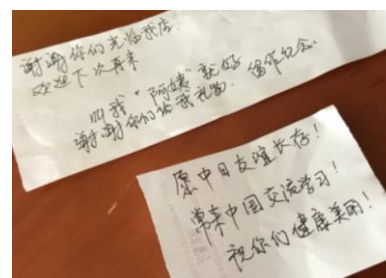 谢谢你们光临我店.
欢迎下次再来
叫我“阿姨”就好
谢谢你们给我礼物. 留作纪念.
愿中日友谊长存!
常来中国交流学习!
祝你们健康美丽!